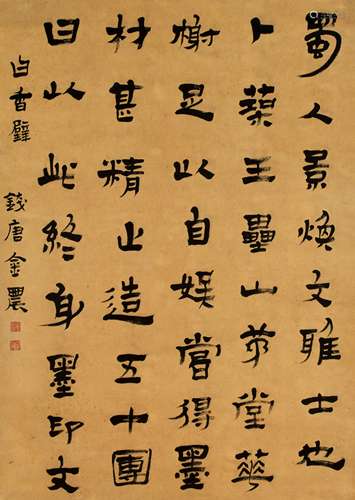 蜀人景煥文雅士也
卜築玉壘山茅堂花
榭足以自娛嘗得墨
材甚精止造五十團
曰以此終身墨印文
曰香璧
錢唐金農